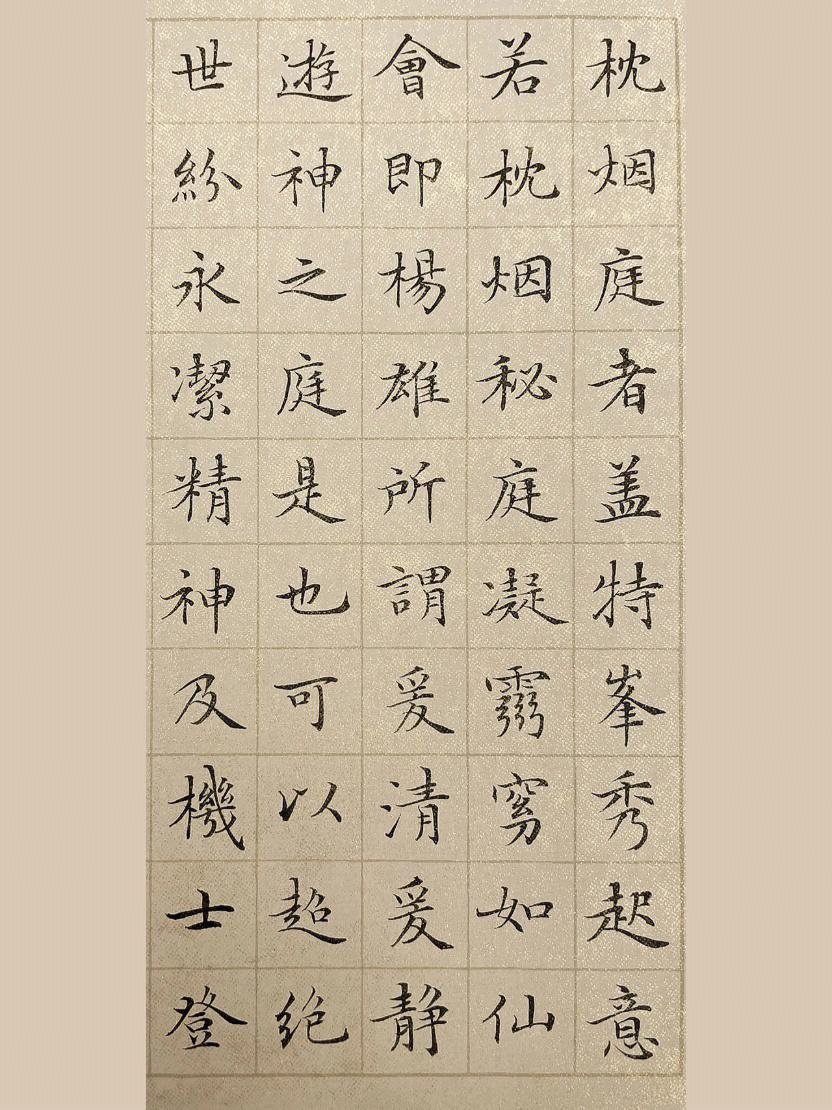 枕烟庭者盖特峯秀起意
若枕烟秘庭凝窈如仙
會即楊雄所謂爰清爰静
遊神之庭是也可以超絶
世紛永㓗精神及機士登